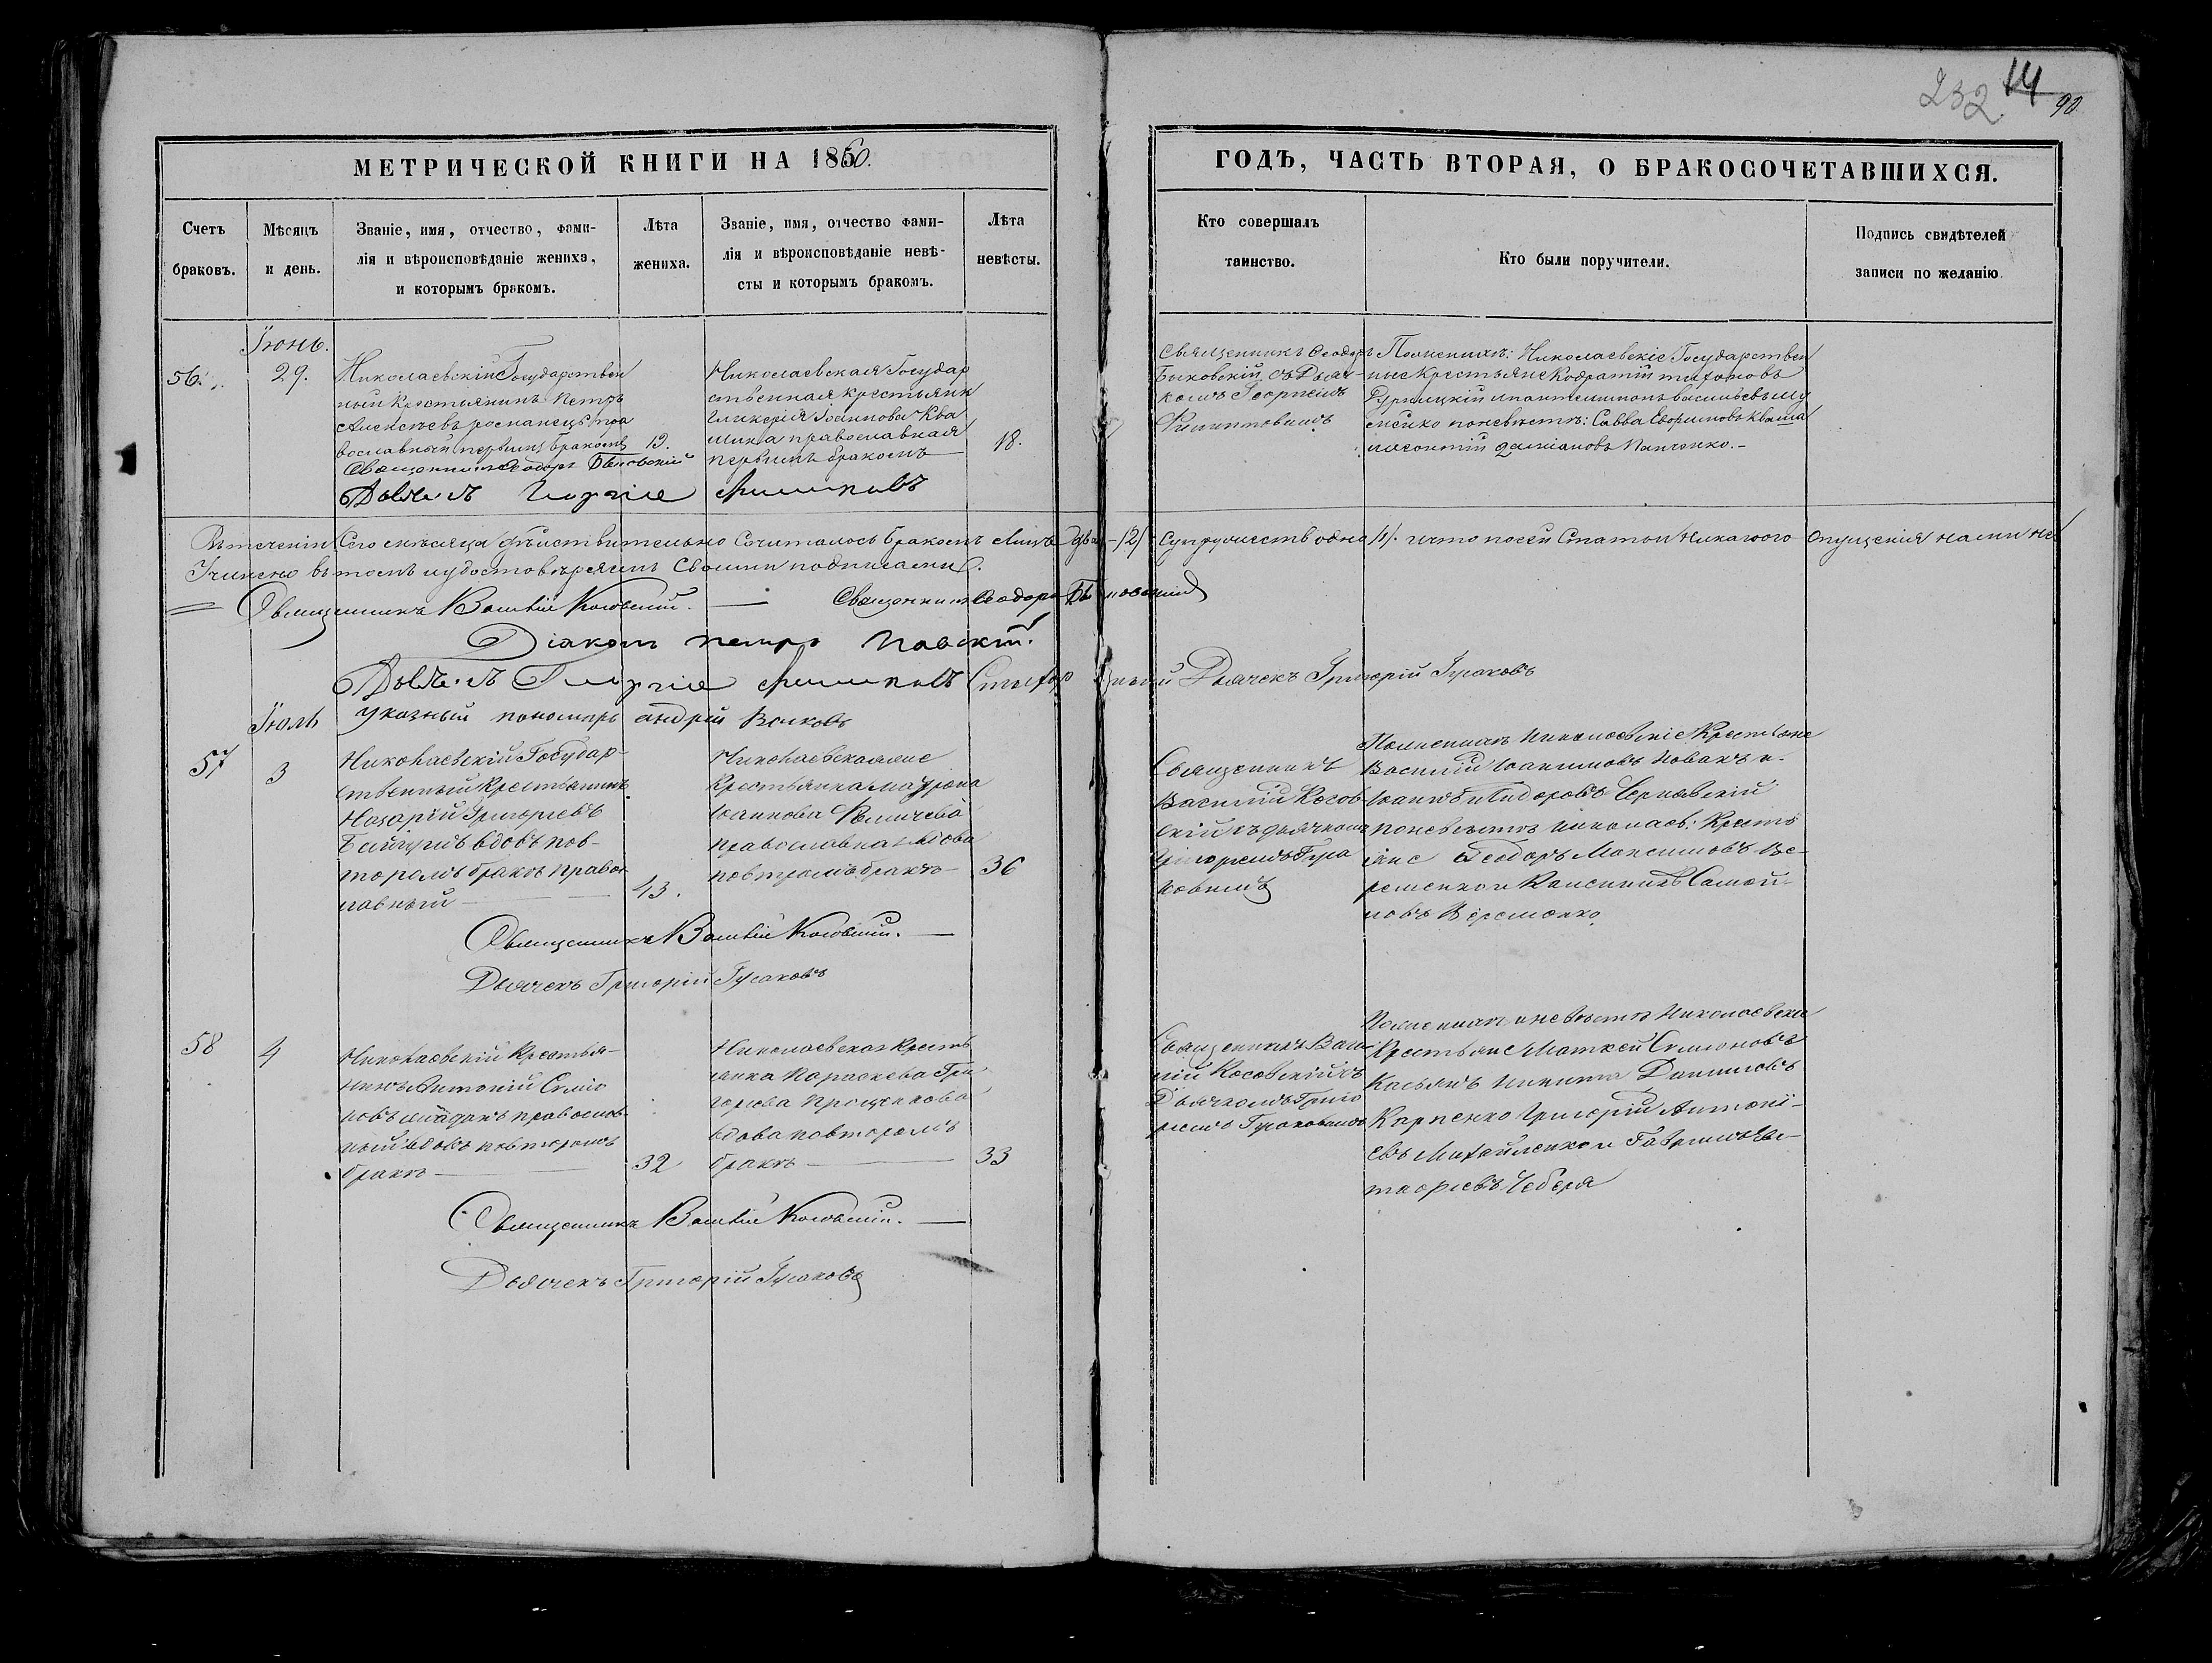 232 14 90
МЕТРИЧЕСКОЙ КНИГИ НА 1860.
ГОДЪ, ЧАСТЬ ВТОРАЯ, О БРАКОСОЧЕТАВШИХСЯ.
Счетъ
браковъ.
Мѣсяцъ
и день.
Званіе, имя, отчество, фами-
лія и вѣроисповѣданіе жениха,
и которымъ бракомъ.
Лѣта
жениха.
Званіе, имя, отчество фами-
лія и вѣроисповѣданіе невѣ-
сты и которымъ бракомъ.
Лѣта
невѣсты.
Кто совершалъ
таинство.
Кто были поручители.
Подпись свидѣтелей
записи по желанію
Іюнь.
56.
29.
Николаевскій Государствен
ный Крестьянинъ Петръ
Алексѣевъ романецъ пра
вославный первымъ бракомъ
19.
Николаевская Государ
ственная крестьянк
Гликерія Іоаннова Ква
шина православная
первымъ бракомъ
18.
Священникъ Ѳеодоръ
Быковскій съ Дьяч-
комъ Георгіемъ
Филиповымъ
По женихѣ: Николаевскіе Государствен
ные Крестьяне Кодратій
и пантелимонъ васильевъ
по невѣстѣ: Савва Евфимовъ Кваша
Панченко. -
Священникъ Ѳеодоръ Быковскій
Дьячекъ Георгіе Филиповъ
Въ теченіи Сего мѣсяца дѣйствительно Сочиталось бракомъ Лицъ два /2/ Супружествъ одно /1/. и что по сей Статьи Никакого Опущенія нами не
Учинено въ томъ и удостовѣряемъ Своими подписами.
Священникъ Василій Косовскій. — Священникъ Ѳеодоръ Быковскій
Діаконъ петръ Павскій.
Дьячекъ Георгіе Филиповъ Дьячек Григорій Гусаковъ
Указный пономарь андрей Волковъ
Іюль
57
3
Николаевскій Государ-
ственный Крестьянинъ
Назарій Григорьевъ
вдовъ пов-
торомъ бракѣ правос
лавный
43.
Николаевская
Крестьянка
Іоаннова
православная вдова
повторомъ бракѣ
36
Священникъ
Василій Косов-
скій съ дьячкомъ
Григоріемъ Гуса
ковымъ
По женихѣ Николаевскіе Крестьяне
Василій Іоакимовъ Новакъ и
Іоаннъ
по невѣстѣ николаев: Кресть
яне Ѳеодоръ Максимовъ Ве-
ременко и Самой-
ловъ Веременко
Священникъ Василій Косовскій. —
Дьячекъ Григорій Гусаковъ
58
4
Николаевскій Крестья-
нинъ Антоній Семіо
новъ православ
ный вдовъ повторомъ
бракѣ
32
Николаевская Кресть
янка Параскева Гри
горіева Прощенкова
вдова повторомъ
бракѣ
33
Священникъ Васи-
лій Косовскій съ
Дьячкомъ Григо
ріемъ Гусаковымъ
По женихѣ и невѣстѣ Николаевскіе
Крестьяне Матвей Семіоновъ
Касьянъ Никита Даниловъ
Карпенко Григорій Антоні-
евъ Михайленко и Гавріилъ Не-
Чебуря
Священникъ Василій Косовскій. —
Дьячекъ Григорій Гусаковъ